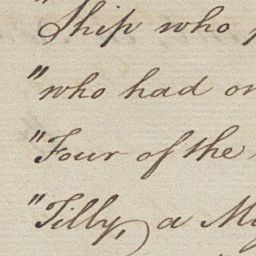 "Ship who
"who had
"Four of the
"Tilly, a